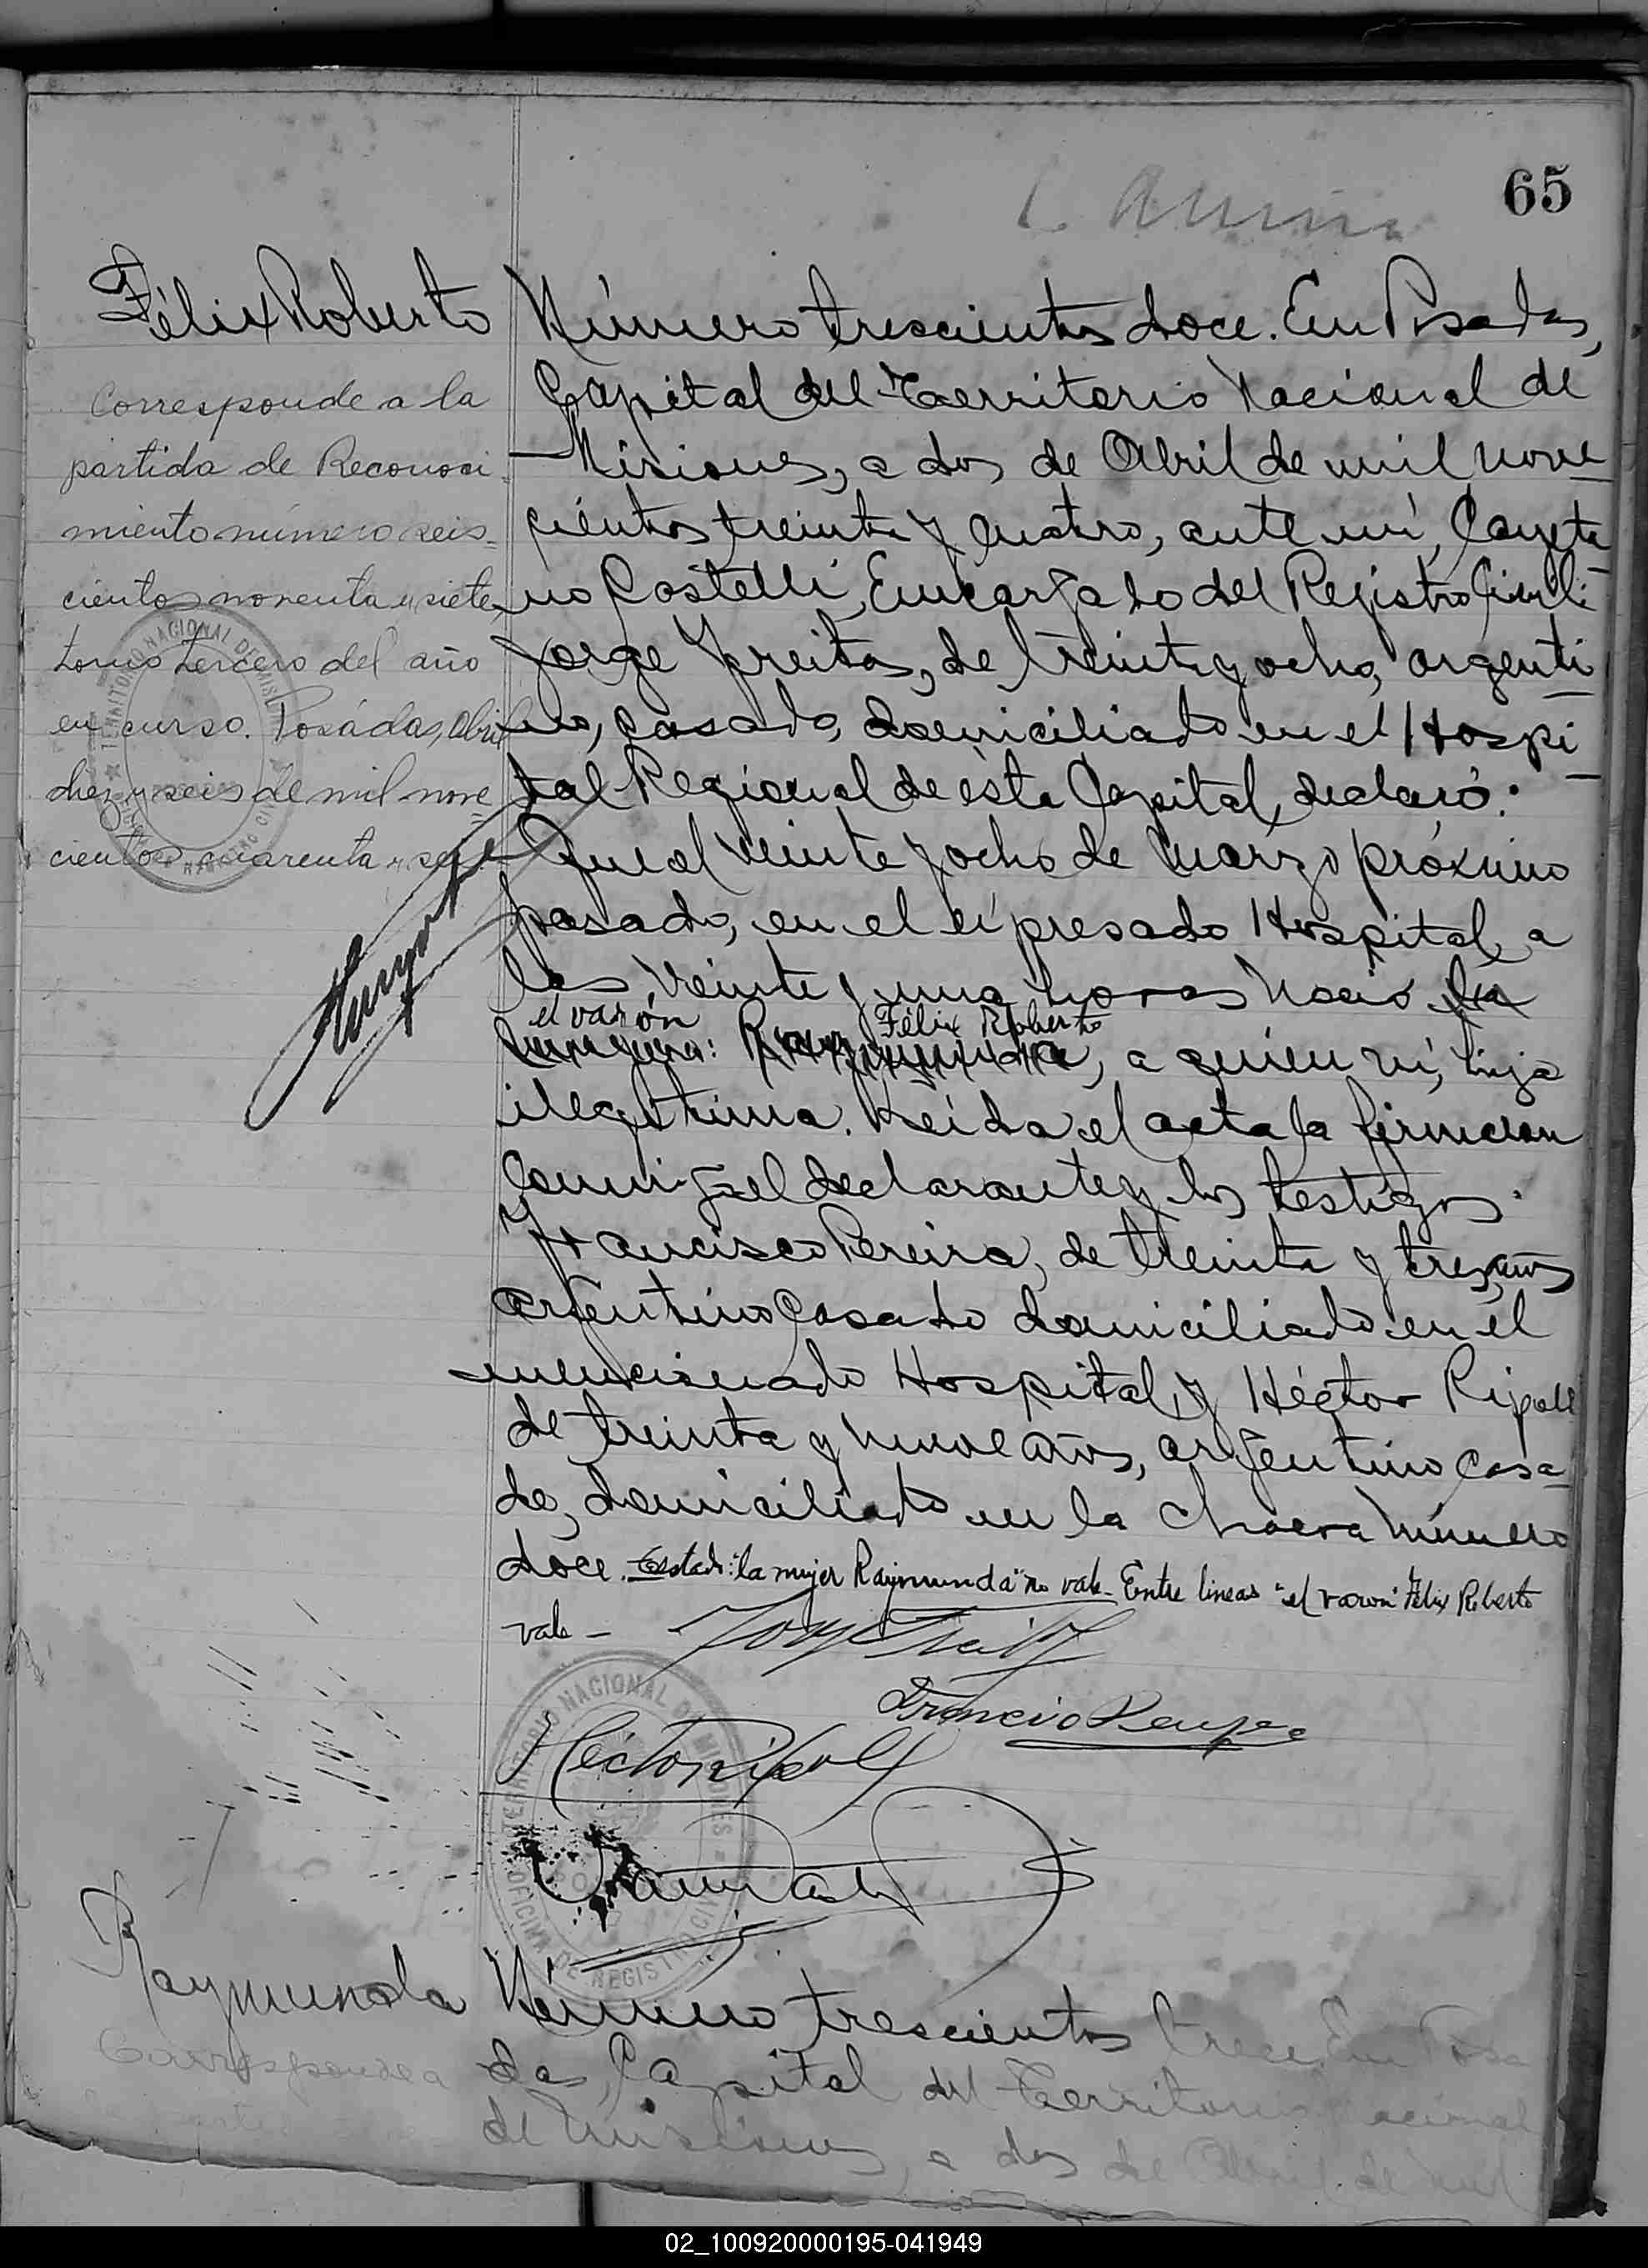 65
Félix Roberto
Corresponde a la
partida de Reconoci=
miento número seis=
cientos noventa y siete,
tomo tercero del año
en curso. Posadas, Abril
diez y seis de mil nove=
cientos cuarenta y
Número trescientos doce. En Posadas,
Capital del Territorio Nacional de
Misiones, a dos de Abril de mil nove-
cientos treinta y cuatro, ante mí, Cayeta-
no Castelli, Encargado del Registro Civil:
Jorge Freitas, de treinta y ocho, argenti-
no, casado, domiciliado en el Hospi-
tal Regional de ésta Capital, declaró:
Que el veinte y ocho de Marzo próximo
pasado, en el expresado Hospital, a
las veinte y una horas nació la
el varón Félix Roberto
mujer: Raymunda, a quien ví, hija
ilegítima. Leída el acta la firmaron
conmigo el declarante y los testigos:
Francisco Pereira, de treinta y tres años,
argentino casado domiciliado en el
mencionado Hospital y Héctor Ripoll
de treinta y nueve años, argentino casa-
do, domiciliado en la chacra número
doce. Testado: "la mujer Raymunda" no vale - Entre lineas "el varon" Félix Roberto
vale -
Jorge Freitas
Francisco Pereyra
Héctor Ripoll
TERRITORIO NACIONAL DE MISIONES
OFICINA DE REGISTRO CIVIL
Raymunda
Corresponde a
Número trescientos trece. En Posa
das, Capital del Territorio Nacional
de Misiones, a dos de Abril de mil
02_100920000195-041949